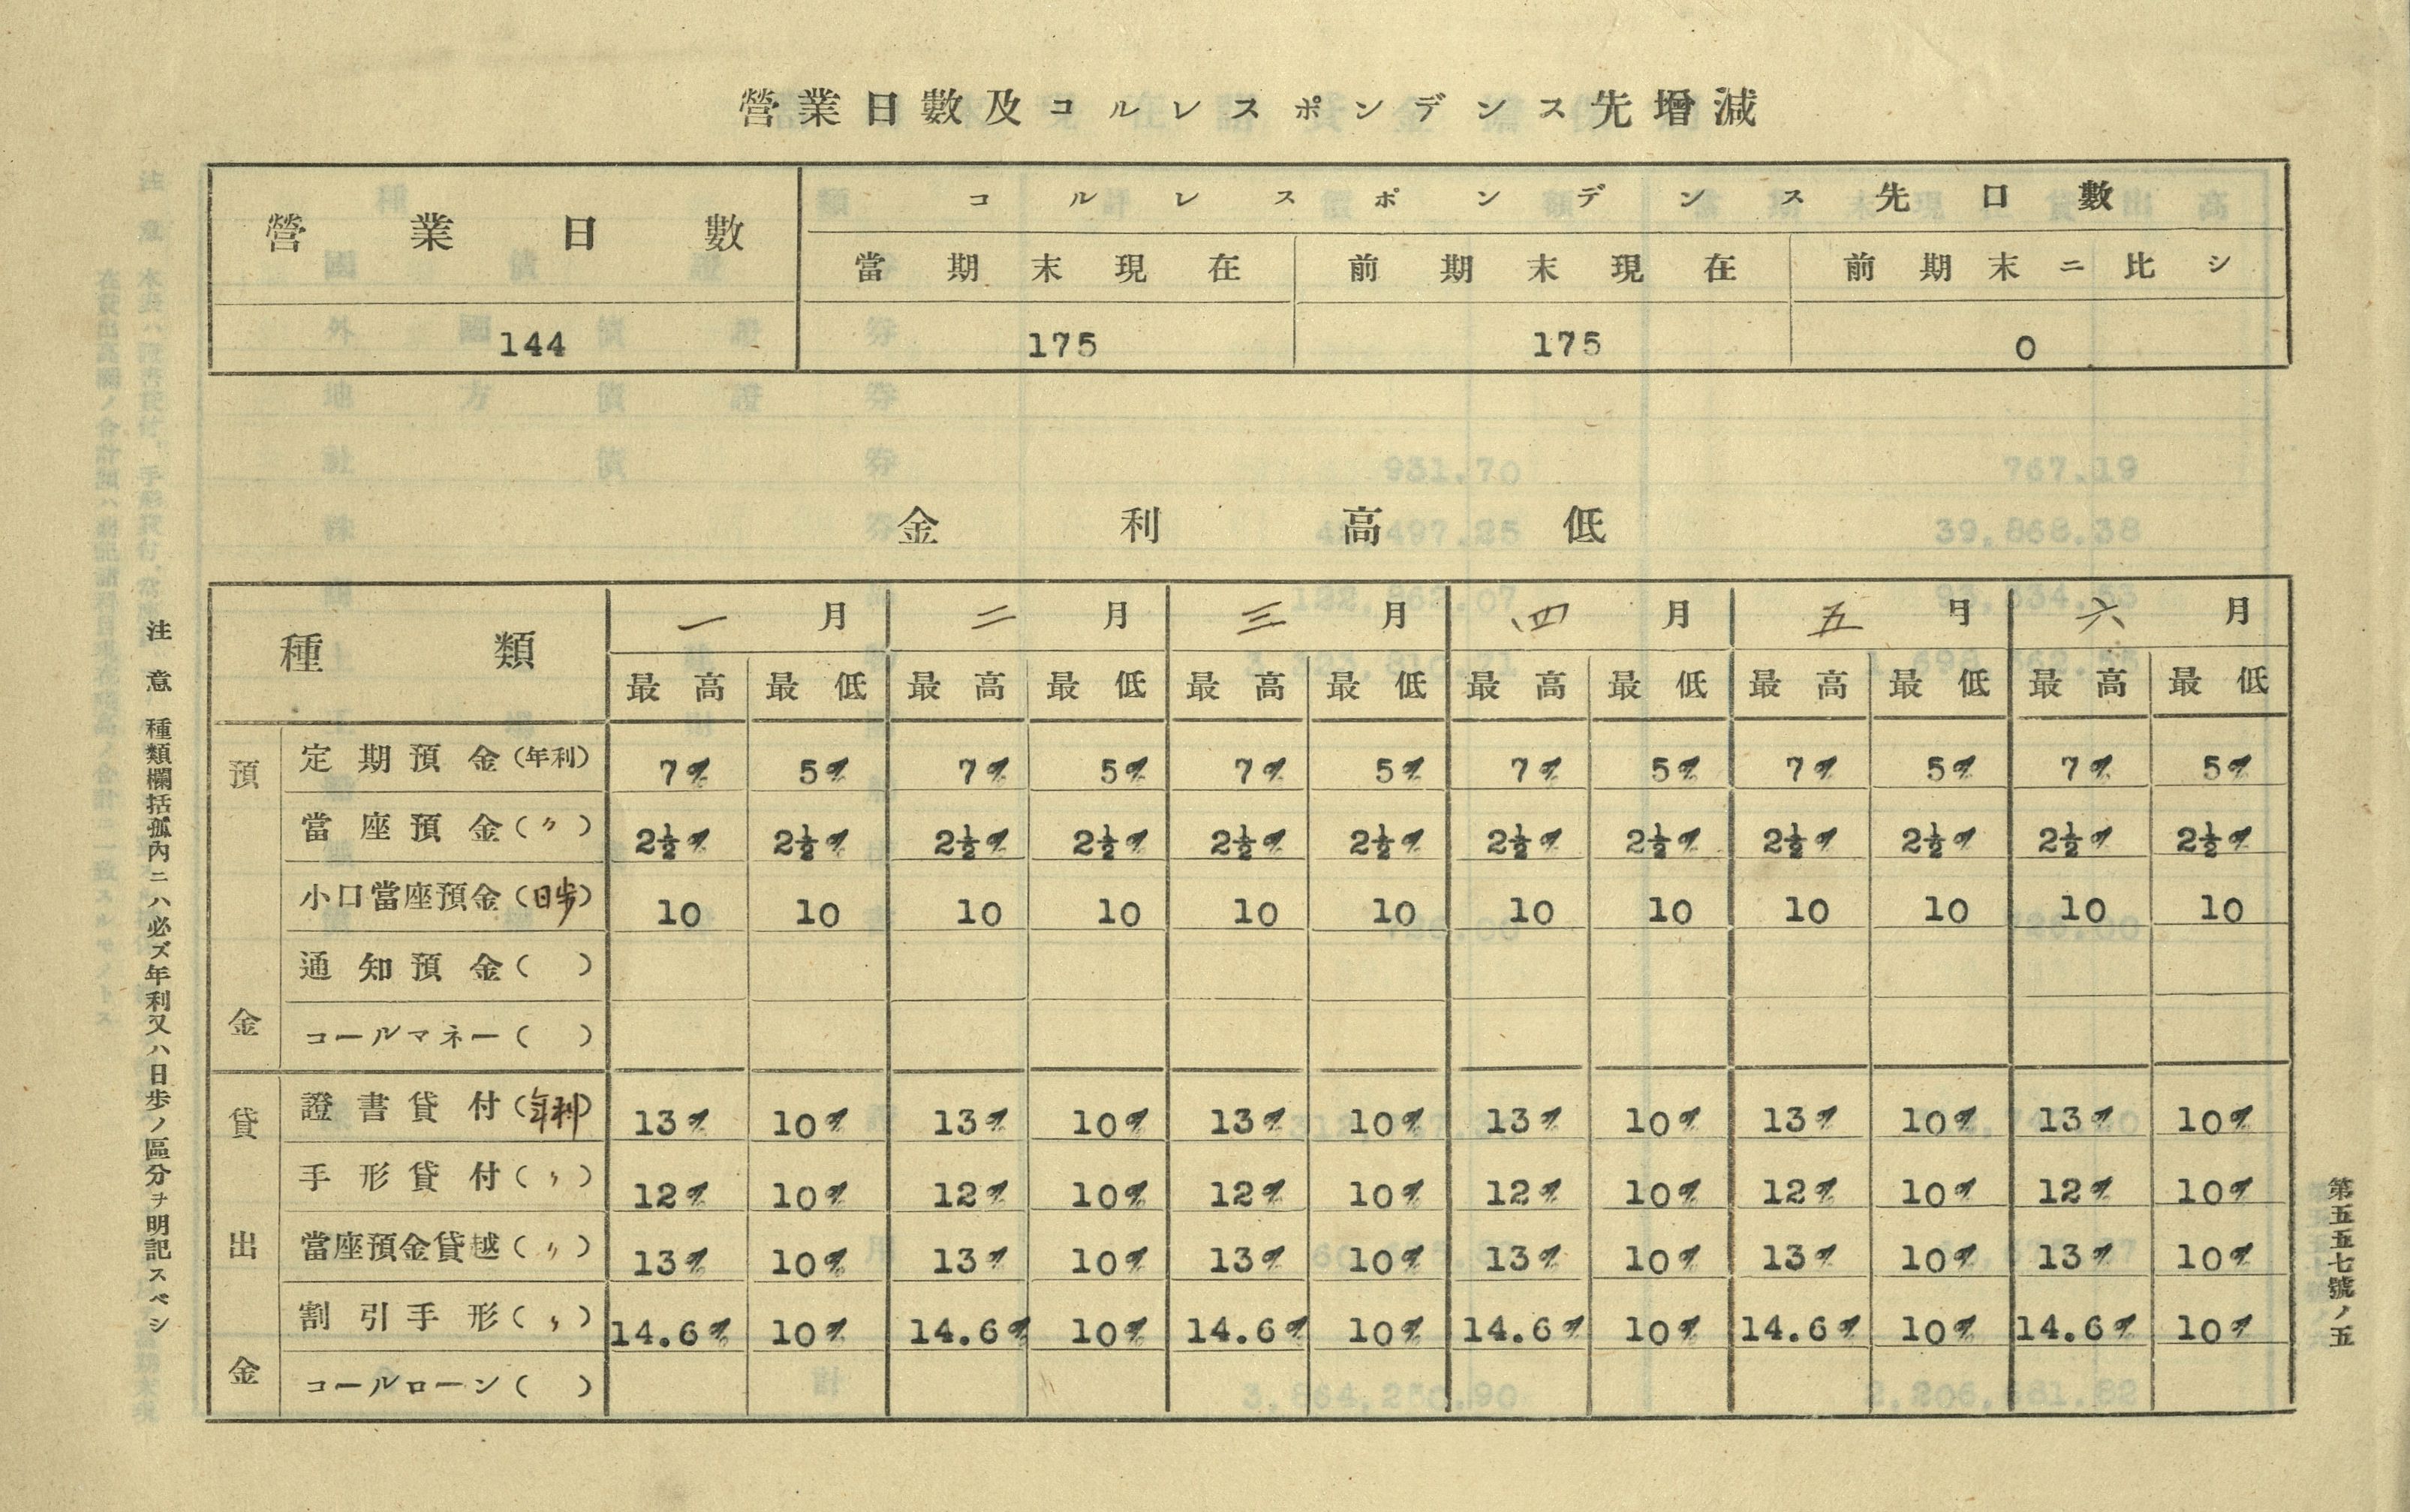 營業日數及コルレスポンデンス先增減
營業日數 コルレスポンデンス先口數
當期末現在 前期末現在 前期末ニ比シ
144 175 175 0
金利高低
種類 一月 二月 三月 四月 五月 六月
最高 最低 最高 最低 最高 最低 最高 最低 最高 最低 最高 最低
預金
定期預金(年利) 7% 5% 7% 5% 7% 5% 7% 5% 7% 5% 7% 5%
當座預金(〃) 2½% 2½% 2½% 2½% 2½% 2½% 2½% 2½% 2½% 2½% 2½% 2½%
小口當座預金(日歩) 10 10 10 10 10 10 10 10 10 10 10 10
通知預金( )
コールマネー( )
貸出金
證書貸付(年利) 13% 10% 13% 10% 13% 10% 13% 10% 13% 10% 13% 10%
手形貸付(〃) 12% 10% 12% 10% 12% 10% 12% 10% 12% 10% 12% 10%
當座預金貸越(〃) 13% 10% 13% 10% 13% 10% 13% 10% 13% 10% 13% 10%
割引手形(〃) 14.6% 10% 14.6% 10% 14.6% 10% 14.6% 10% 14.6% 10% 14.6% 10%
コールローン( )
注意 種類欄括孤內ニハ必ズ年利又ハ日歩ノ區分ヲ明記スベシ
第五五五七號ノ五